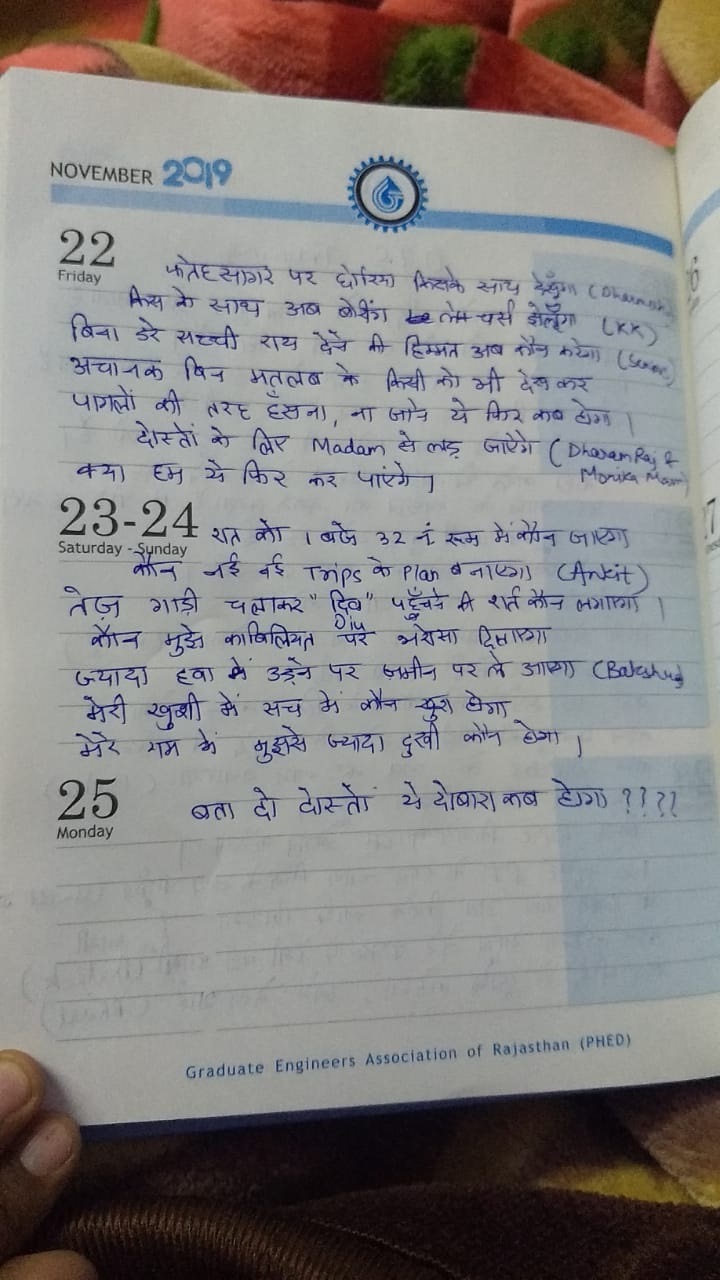 NOVEMBER 2019
22
Friday
फतेहसागर पर छोरिया किसके साथ देखूँगा (Dharmesh
किस के साथ अब बोरिंग लेक्चर्स झेलूँगा (KK)
बिना डरे सच्ची राय देने की हिम्मत अब कौन करेगा
अचानक बिन मतलब के किसी को भी देख कर
पागलों की तरह हँसना, ना जाने ये फिर कब होगा ।
दोस्तों के लिए Madam से लड़ जाएंगे (DharamRaj &
Monika Mam)
क्या हम ये फिर कर पाएंगे ।
23-24
Saturday - Sunday
रात को 1 बजे 32 नं. रूम में कौन जाएगा
कौन नई नई Trips के Plan बनाएगा (Ankit)
तेज़ गाड़ी चलाकर "दिव" पहुँचने की शर्त कौन लगाएगा ।
Diu
कौन मुझे काबिलियत पर भरोसा दिलाएगा
ज्यादा हवा में उड़ने पर ज़मीन पर ले आएगा
मेरी खुशी में सच में कौन खुश होगा
मेरे गम में मुझसे ज्यादा दुखी कौन होगा ।
25
Monday
बता दो दोस्तों ये दोबारा कब होगा ????
Graduate Engineers Association of Rajasthan (PHED)